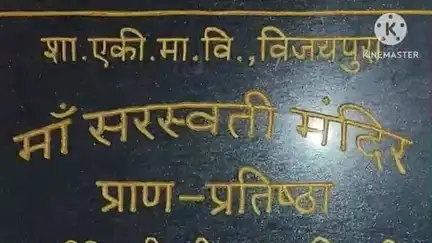 शा.एकी.मा.वि.,विजयपुरा
KINEMASTER
माँ सरस्वती मंदिर
प्राण-प्रतिष्ठा